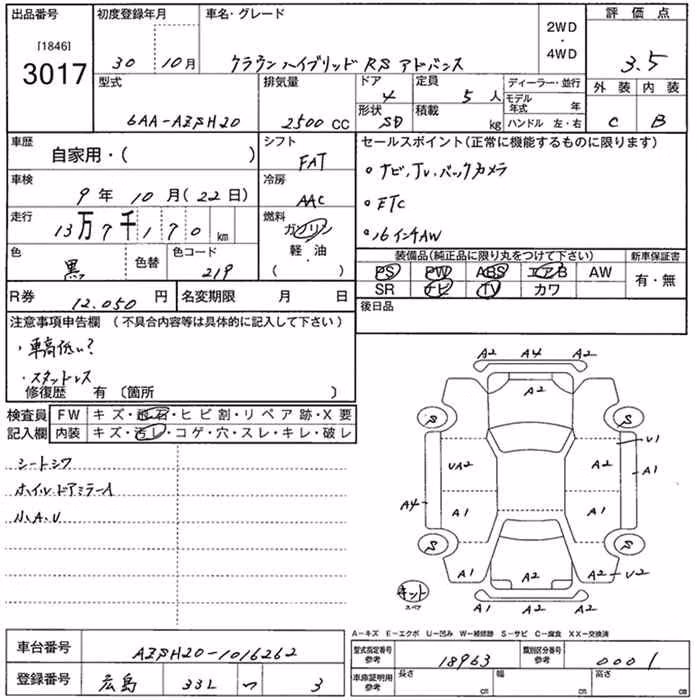 出品番号 初度登録年月 車名・グレード 2WD ・ 4WD 評価点
[1846]
3017 30 10月 クラウンハイブリッド RS アドバンス 3.5
型式 排気量 ドア 定員 ディーラー・並行 外装 内装
6AA-AZSH20 2500 CC 4 5人 モデル年式 年
形状 SD 積載 kg ハンドル 左・右 C B
車歴 自家用・( ) シフト FAT セールスポイント(正常に機能するものに限ります)
車検 9年10月(22日) 冷房 AAC
・ナビ,TV,バックカメラ
・ETC
・16インチAW
走行 13万7千170km 燃料 ガソリン 軽・油 ( )
色 黒 色替 色コード 219
装備品(純正品に限り丸をつけて下さい) 新車保証書
PS PW ABS エアB AW 有・無
SR ナビ TV カワ
R券 12.050円 名変期限 月 日
後日品
注意事項申告欄 (不具合内容等は具体的に記入して下さい)
・車高低い?
・スタットレス
修復歴 有 〔箇所 〕
検査員記入欄 FW キズ・飛石・ヒビ割・リペア跡・X要
内装 キズ・汚レ・コゲ・穴・スレ・キレ・破レ
シートシワ
ホイル.ドアミラーA
小.A.U
A2 A4 A2
A2
S S
U1
UA2 A2 A1
A4
A1 A1
S S
A1 A2 A2 U2
キット
スペア
A1 A2 A2
A-キズ E-エクボ U-凹み W-補修跡 S-サビ C-腐食 XX-交換済
車台番号 AZSH20-1016262
型式指定番号 参考 18963 類別区分番号 参考 0001
登録番号 広島 33L つ 3
車庫証明用 参考 長さ cm 幅 cm 高さ cm